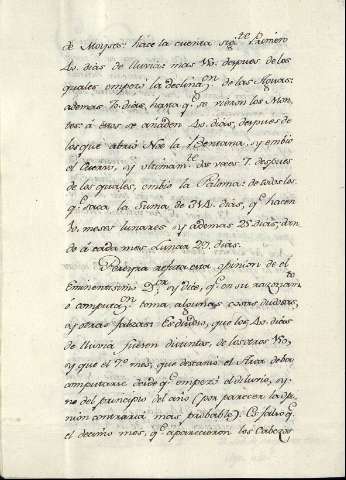 de Moyses: hàce la cuenta sig.te Primero
40. dias de lluvia: mas 150. despues de los
quales empezó la declina.on de las Aguas:
ademas 70. dias, hasta q.e se vieron los Mon-
tes: á estos se añaden 40. dias, despues de
los que abrió Noe la Ventana, y embió
el Cuervo, y ultimam.te dos veces 7. despues
de los quales, embió la Paloma: de todos los
q.e saca la Suma de 314. dias, q.e hacen
10. meses lunares y ademas 25. dias; dan-
do á cada mes Lunar 29. dias.
Pereyra refuta esta opinion de el
Eminentisimo D.or y dice, q.e en su razonam.to
ó computa.on toma algunas cosas dudosas,
y otras falsas: Es dudoso, que los 40. dias
de lluvia fuesen distintos, de los otros 150,
y que el 7.o mes, que descansó el Arca deba
computarse desde q.e empezó el diluvio, y
no del principio del año (por parecer la opi-
nion contraria mas probable): Es falso q.e
el decimo mes, q.e aparecieron las Cabezas